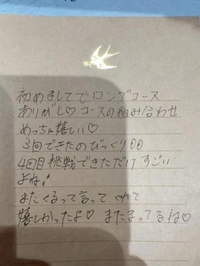 初めましてでロングコース
ありがと♡コースの組み合わせ
めっちゃ嬉しい♡
3回できたのびっくり
4回目挑戦できただけすごい
よね!
またくるって言ってくれて
嬉しかったよ♡ またまってるね♡